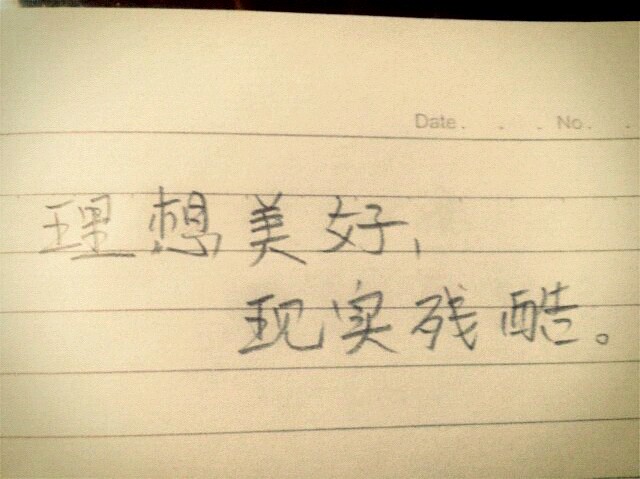 Date . . . No. .
理想美好,
现实残酷。